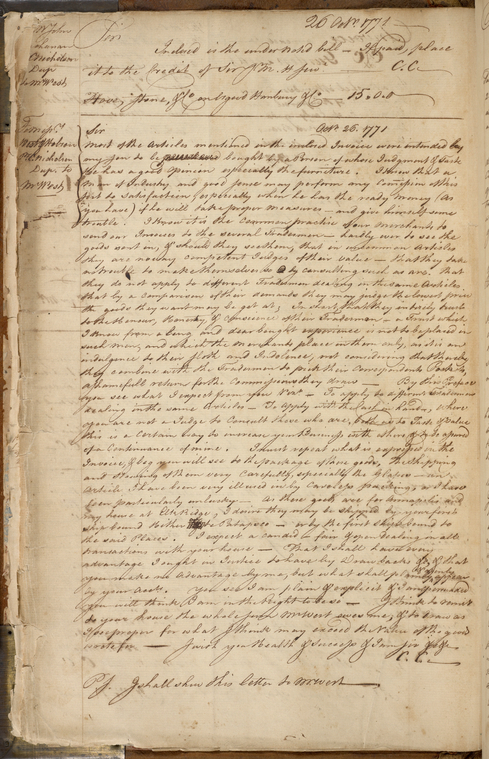 26 Octr. 1771
Sir
Inclosed is the under noted bill — I desire you place
it to the Credit of Sir Yr. M. H Serv. — C.C.
To Mr John
Buchanan
Nicholson
Dup
to Mr West
Octr. 26. 1771
Sir
Most of the Articles mentioned in the inclosed Invoice were intended by
any Son to be bought by a Person of whose Judgment & Taste
he has a good opinion especially the furniture. I know that a
Man of Industry and good sense may perform any Commission of this
sort to Satisfaction (especially when he has the ready Money (as
you have) if he will take proper measures and give himself some
trouble. I know it is the Common practice of our Merchants to
send our Invoices to the several Tradesmen — hardly ever to see the
goods sent in, & should they see them, that in uncommon Articles
they are no way competent Judges of their value — That they take
no trouble to make themselves so by consulting such as are. That
they do not apply to different Tradesmen dealing in the same Articles
that by a Comparison of their demands they may judge the lowest price
the goods they want may be got at; In short that they intirely trust
to the Honour, Honesty, & Conscience of their Tradesmen — a Trust which
I know from a long and dear bought experience is not to be placed in
such men, and which the Merchants place in them only, as it is an
indulgence to their Sloth and Indolence, not considering that thereby
they combine with the Tradesmen to pick their Correspondents Pockets,
a shamefull return for the Commissions they draw — By this Preface
you see what I expect from you Vizt — To apply to different Tradesmen
dealing in the same Articles — To apply with the Cash in hand, where
you are not a Judge to Consult those who are, both as to Taste & Value
this is a Certain way to increase your Business with others & to be assured
of a Continuance of mine. I must repeat what is expressed in the
Invoice, & beg you will see to the Package of these goods, the Shipping
and Stowing of them very Carefully, especially the Glasses — in
Article I have been very ill used in by Careless packing, as I have
been particularly unlucky — As these goods are for Annapolis, and
my house at Elk Ridge, I desire they may be Shipped by your first
Ship bound to Patapsco — or by the first Ship bound to
the said Places. I expect a candid — fair & open dealing in all
transactions with your house — That I shall have every
advantage I ought in Justice to have by Draw backs &c, & that
you make no advantage by me, but what shall plainly appear
by your Acct. You see I am plain & explicit & I am persuaded
you will think I am in the Right to be so — I think to remit
to your house the whole Sum Mr West owes me, & to draw as
I see proper for what I think may exceed the Value of the goods
wrote for — I wish you Health & Success & I am Sir &c &c
C. C.
P.S. I shall shew this letter to Mr West